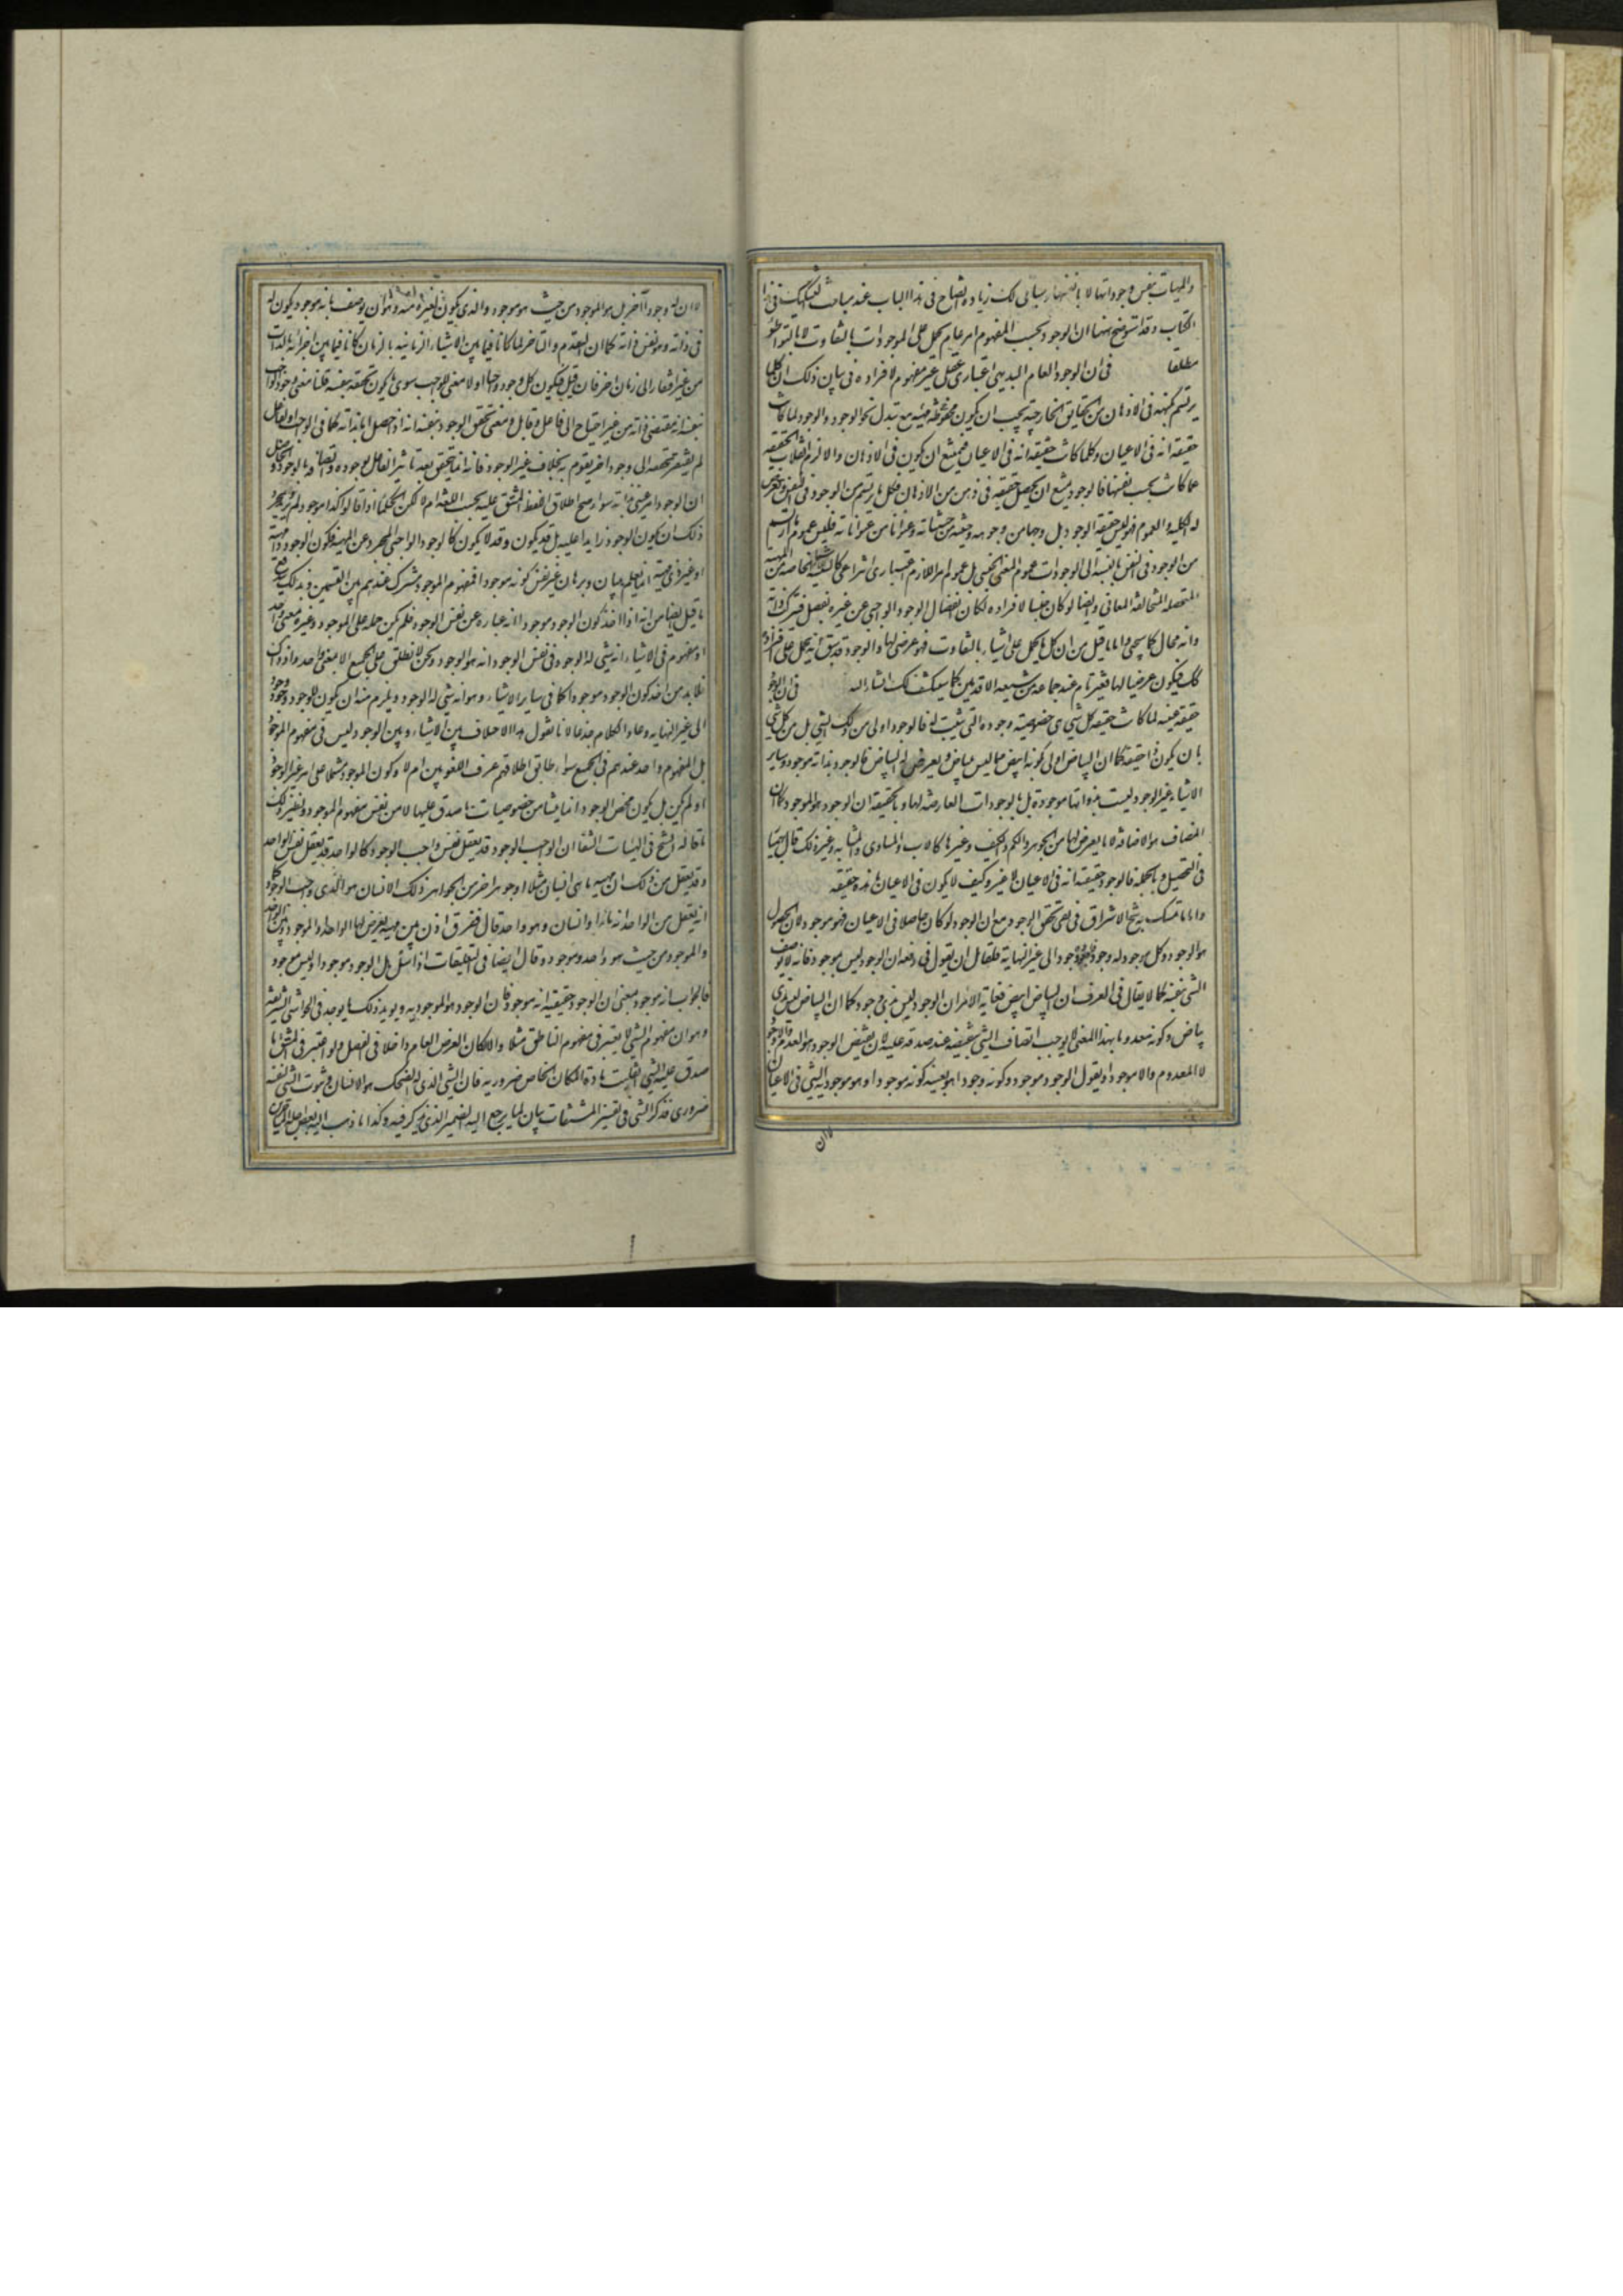 والمهيات بنفس وجوداتها لا بانفسها وسياتى لك زيادة ايضاح فى هذا الباب عند مباحث التشكيك فى هذا
الكتاب وقد استوضح ههنا ان الوجود بحسب المفهوم امر عام يحمل على الموجودات بالتفاوت لا بالتواطؤ
مطلقا فى ان الوجود العام البديهى اعتبارى عقلى غير مقوم لافراده فى بيان ذلك ان كلما
يرتسم بكنهه فى الاذهان من الحقايق الخارجية يجب ان يكون مهيته محفوظة مع تبدل نحو الوجود والوجود لما كانت
حقيقته انه فى الاعيان وكلما كانت حقيقته انه فى الاعيان فيمتنع ان يكون فى الاذهان والا لزم انقلاب الحقيقة
عما كانت بحسب نفسها فالوجود يمتنع ان يحصل حقيقته فى ذهن من الاذهان فكل ما يرتسم من الوجود فى النفس ويعرض
له الكلية والعموم فهو ليس حقيقة الوجود بل وجها من وجوهه وحيثية من حيثياته وعنوانا من عنواناته فليس عموم ما ارتسم
من الوجود فى النفس بالنسبة الى الوجودات عموم المعنى الجنسى بل عموم امر لازم اعتبارى انتزاعى كالشيئية للاشياء الخاصة من المهيات
المتحصلة المتخالفة المعانى وايضا لو كان جنسا لافراده لكان انفصال الوجود الواجبى عن غيره بفصل فيتركب ذاته
وانه محال كما سيجئ واما ما قيل من ان كل ما يحمل على اشياء بالتفاوت فهو عرضى لها والوجود قد سبق انه يحمل على افراده
كك فيكون عرضيا لها فغير تام عند جماعة من شيعة الاقدمين كما سينكشف لك انشاء الله فى ان للوجود
حقيقة عينية لما كانت حقيقة كل شى هى خصوصية وجوده التى يثبت له فالوجود اولى من ذلك الشى بل من كل شى
بان يكون ذا حقيقة كما ان البياض اولى بكونه ابيض مما ليس ببياض ويعرض له البياض فالوجود بذاته موجود وساير
الاشياء غير الوجود ليست بذواتها موجودة بل بالوجودات العارضة لها وبالحقيقة ان الوجود هو الموجود كما ان
المضاف هو الاضافة لا ما يعرض لها من الجوهر والكم والكيف وغيرها كالاب والمساوى والمشابه وغير ذلك قال بهمنيار
فى التحصيل وبالجملة فالوجود حقيقته انه فى الاعيان لا غير وكيف لا يكون فى الاعيان ما هذه حقيقته
واما ما تمسك به شيخ الاشراق فى نفى تحقق الوجود من ان الوجود لو كان حاصلا فى الاعيان فهو موجود لان الحصول
هو الوجود وكل موجود له وجود فلوجوده وجود الى غير النهاية فلقائل ان يقول فى دفعه ان الوجود ليس بموجود فانه لا يوصف
الشى بنفسه كما لا يقال فى العرف ان البياض ابيض فغاية الامر ان الوجود ليس بذى وجود كما ان البياض ليس بذى
بياض وكونه معدوما بهذا المعنى لا يوجب اتصاف الشى بنقيضه عند صدقه عليه لان نقيض الوجود هو العدم واللاوجود
لا المعدوم واللاموجود او يقول الوجود موجود وكونه وجودا هو بعينه كونه موجودا وهو موجودية الشى فى الاعيان
لا ان
لا ان له وجودا آخر بل هو الموجود من حيث هو موجود والذى يكون لغيره منه وهو ان يوصف بانه موجود يكون له
فى ذاته وهو نفس ذاته كما ان التقدم والتاخر لما كانا فيما بين الاشياء الزمانية بالزمان كانا فيما بين اجزائه بالذات
من غير افتقار الى زمان اخر فان قيل فيكون كل وجود واجبا اذ لا معنى للواجب سوى ما يكون تحققه بنفسه قلنا معنى وجود الواجب
بنفسه انه مقتضى ذاته من غير احتياج الى فاعل وقابل ومعنى تحقق الوجود بنفسه انه اذا حصل اما بذاته كما فى الواجب او بفاعل
لم يفتقر تحققه الى وجود اخر يقوم به بخلاف غير الوجود فانه انما يتحقق بعد تاثير الفاعل بوجوده واتصافه بالوجود والحاصل
ان الوجود امر عينى بذاته سواء صح اطلاق لفظ المشتق عليه بحسب اللغة ام لا لكن الحكماء اذا قالوا كذا موجود لم يريدوا بمجرد
ذلك ان يكون الوجود زايدا عليه بل قد يكون وقد لا يكون كالوجود الواجبى المجرد عن المهية فكون الوجود ذا مهية
او غير ذى مهية انما يعلم ببيان وبرهان غير نفس كونه موجودا فمفهوم الموجود مشترك عندهم بين القسمين وبذلك يندفع
ما قيل ايضا من انه اذا اخذ كون الوجود موجودا انه عبارة عن نفس الوجود فلم يكن حمله على الموجود وغيره بمعنى واحد
اذ مفهومه فى الاشياء انه شى له الوجود وفى نفس الوجود انه هو الوجود ونحن لا نطلق على الجميع الا بمعنى واحد واذ ذاك
فلا بد من اخذ كون الوجود موجودا كما فى ساير الاشياء وهو انه شى له الوجود ويلزم منه ان يكون للوجود وجود
الى غير النهاية وعاد الكلام جذعا لانا نقول هذا الاختلاف بين الاشياء وبين الوجود ليس فى مفهوم الموجود
بل المفهوم واحد عندهم فى الجميع سواء طابق اطلاقهم عرف اللغويين ام لا وكون الموجود مشتملا على امر غير الوجود
او لم يكن بل يكون محض الوجود انما ينشا من خصوصيات ما صدق عليها لا من نفس مفهوم الموجود ونظير ذلك
ما قاله الشيخ فى الهيات الشفا ان الواجب الوجود قد يعقل نفس واجب الوجود كالواحد قد يعقل نفس الواحد
وقد يعقل من ذلك ان مهيته ما هى انسان مثلا او جوهر اخر من الجواهر وذلك الانسان هو الذى واجب الوجود كما
انه يعقل من الواحد انه ماء او انسان وهو واحد قال ففرق اذن بين مهية يعرض لها الواحد او الموجود وبين الواحد
والموجود من حيث هو واحد وموجود وقال ايضا فى التعليقات اذا سئل هل الوجود موجود او ليس بموجود
فالجواب انه موجود بمعنى ان الوجود حقيقته انه موجود فان الوجود هو الموجودية ويؤيد ذلك ما يوجد فى الحواشى الشريفية
وهو ان مفهوم الشى لا يعتبر فى مفهوم الناطق مثلا والا لكان العرض العام داخلا فى الفصل ولو اعتبر فى المشتق ما
صدق عليه الشى انقلبت مادة الامكان الخاص ضرورية فان الشى الذى له الضحك هو الانسان وثبوت الشى لنفسه
ضرورى فذكر الشى فى تفسير المشتقات بيان لما يرجع اليه الضمير الذى يذكر فيه وكذا ما ذهب اليه بعض اجلة المتاخرين